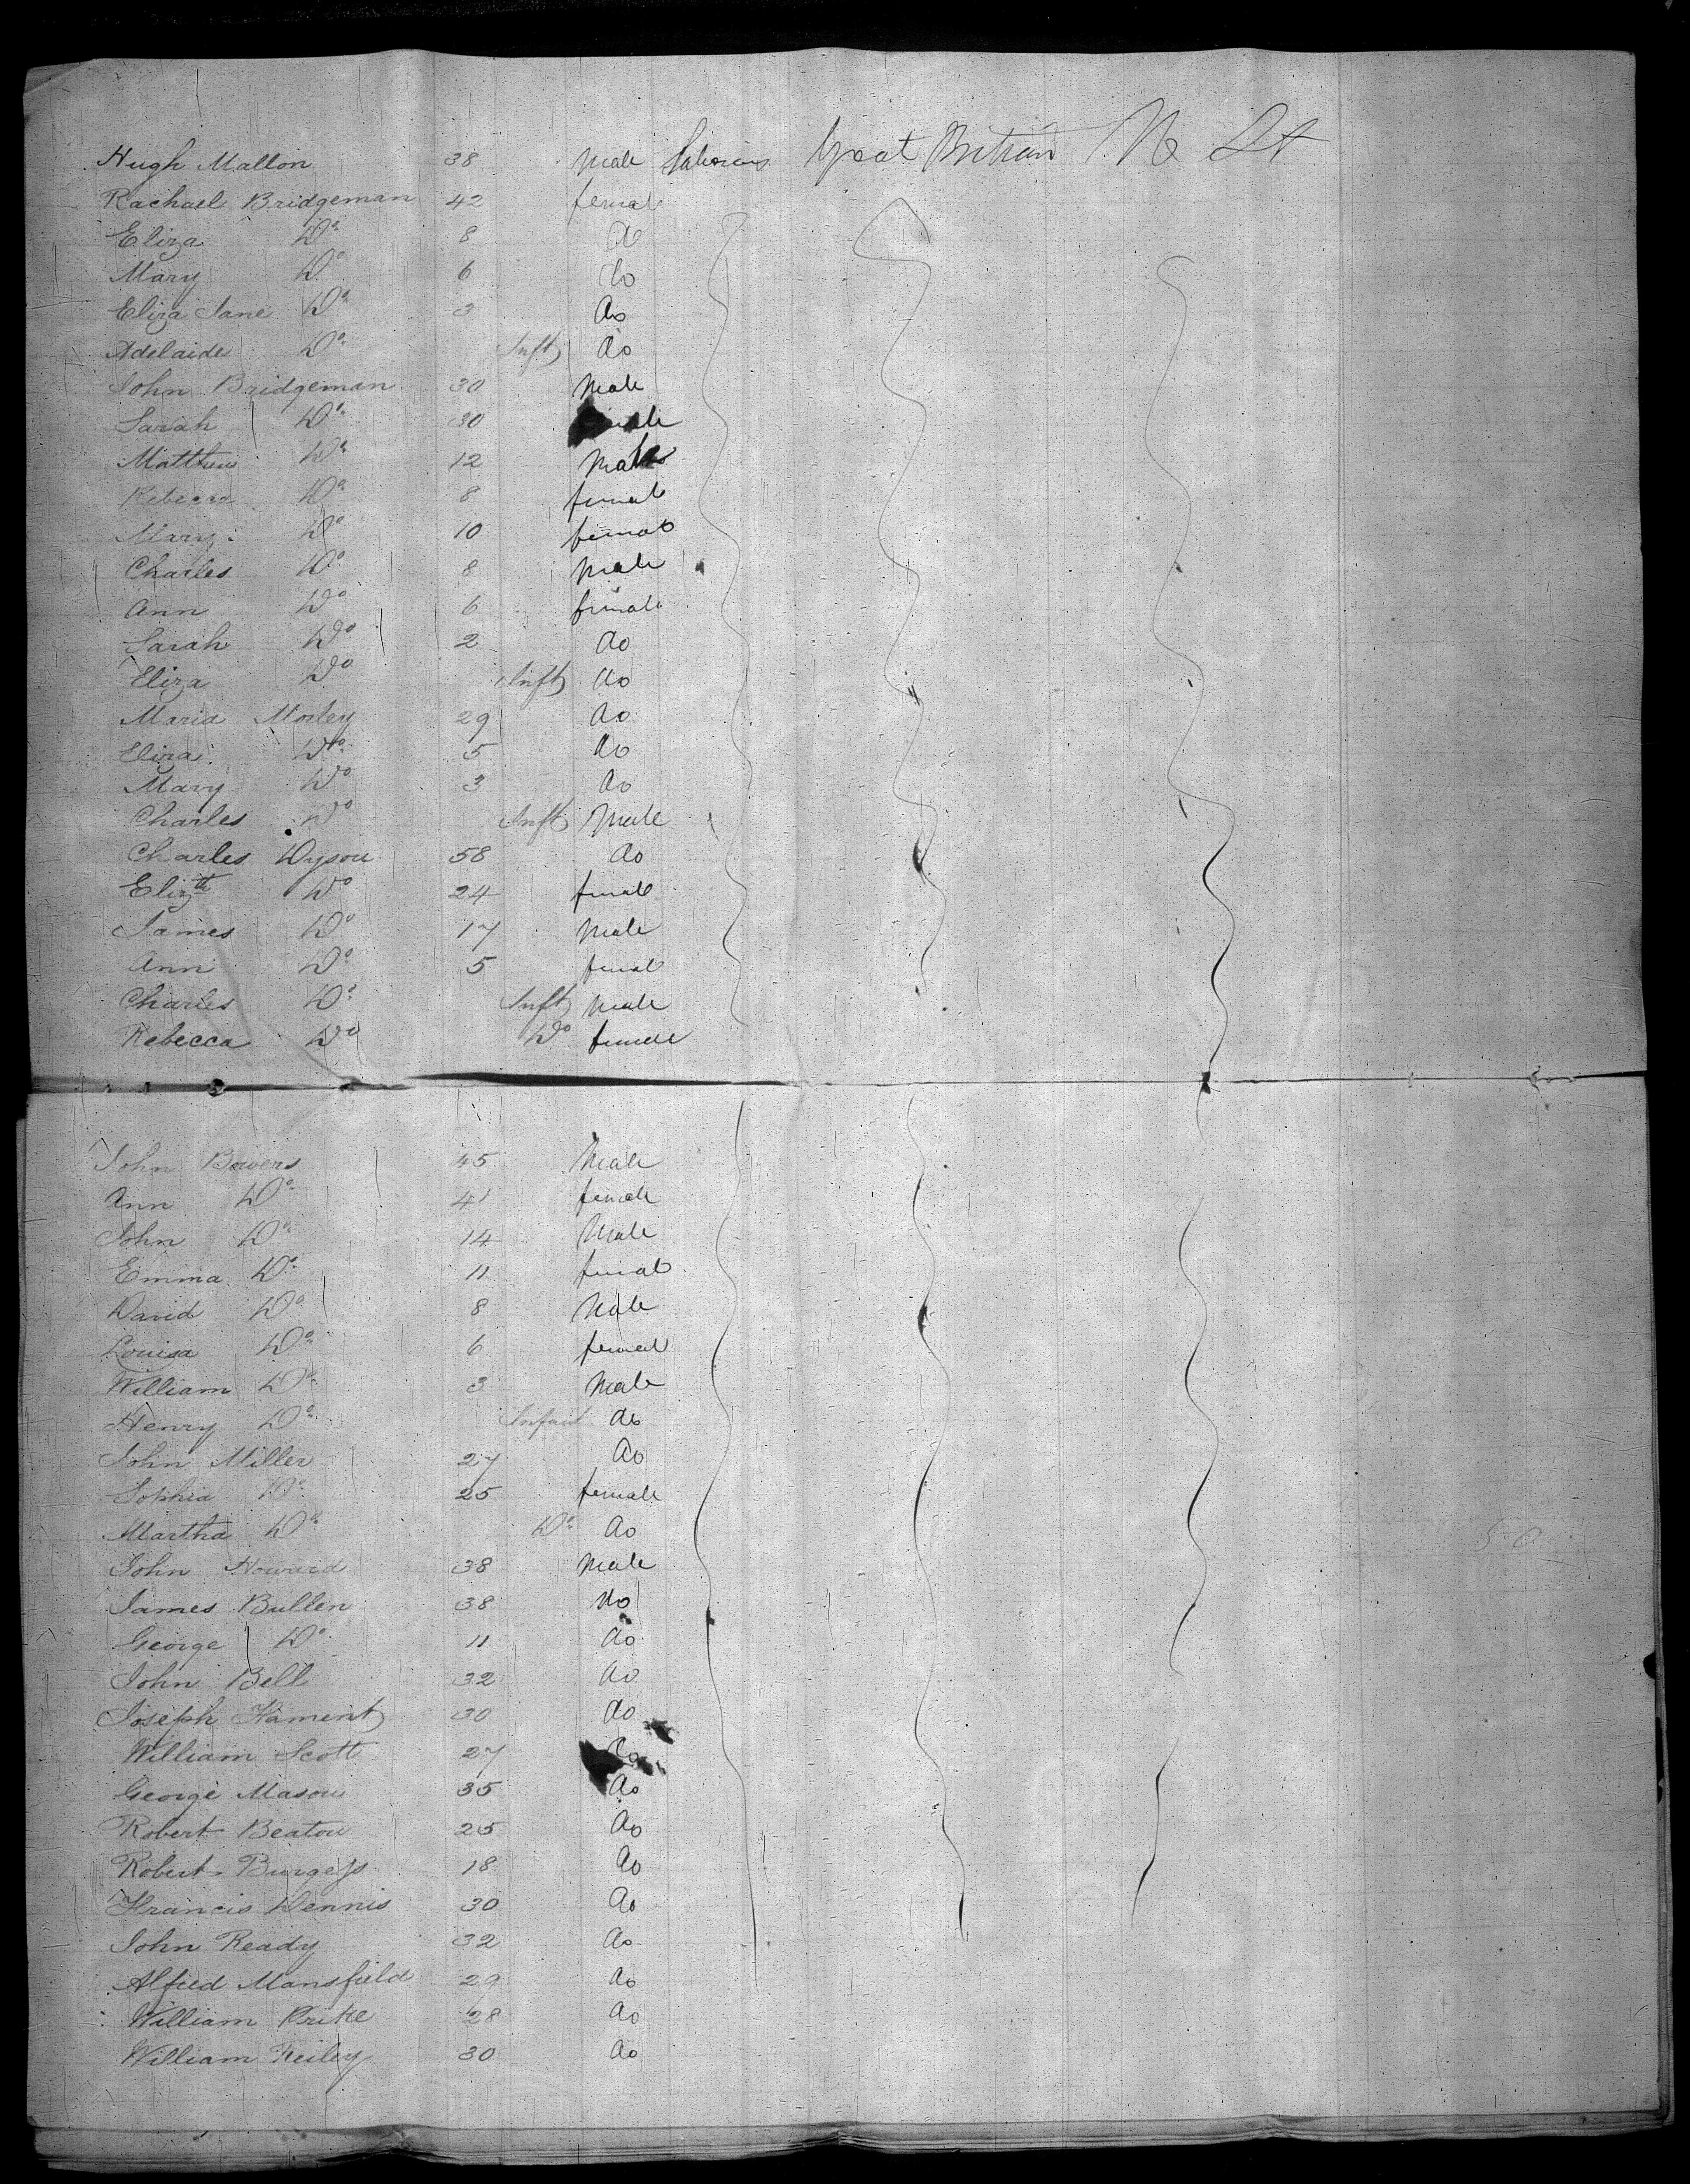 Hugh Mallon 38 Male Laborers Great Britain N St
Rachael Bridgeman 42 female
Eliza Do 8 do
Mary Do 6 do
Eliza Jane Do 3 do
Adelaide Do Inft do
John Bridgeman 30 Male
Sarah Do 30 female
Matthew Do 12 Male
Rebecca Do 8 female
Mary Do 10 female
Charles Do 8 Male
Ann Do 6 female
Sarah Do 2 do
Eliza Do Inft do
Maria Morley 29 do
Eliza Do 5 do
Mary Do 3 do
Charles Do Inft Male
Charles Dyson 58 do
Elizth Do 24 female
James Do 17 Male
Ann Do 5 female
Charles Do Inft Male
Rebecca Do Do female
John Bowers 45 Male
Ann Do 41 female
John Do 14 Male
Emma Do 11 female
David Do 8 Male
Louisa Do 6 female
William Do 3 Male
Henry Do Infant do
John Miller 27 do
Sophia Do 25 female
Martha Do Do do
John Howard 38 Male
James Bullen 38 do
George Do 11 do
John Bell 32 do
Joseph Hament 30 do
William Scott 27 do
George Mason 35 do
Robert Beaton 25 do
Robert Burgess 18 do
Francis Dennis 30 do
John Ready 32 do
Alfred Mansfield 29 do
William Prike 28 do
William Keiley 30 do